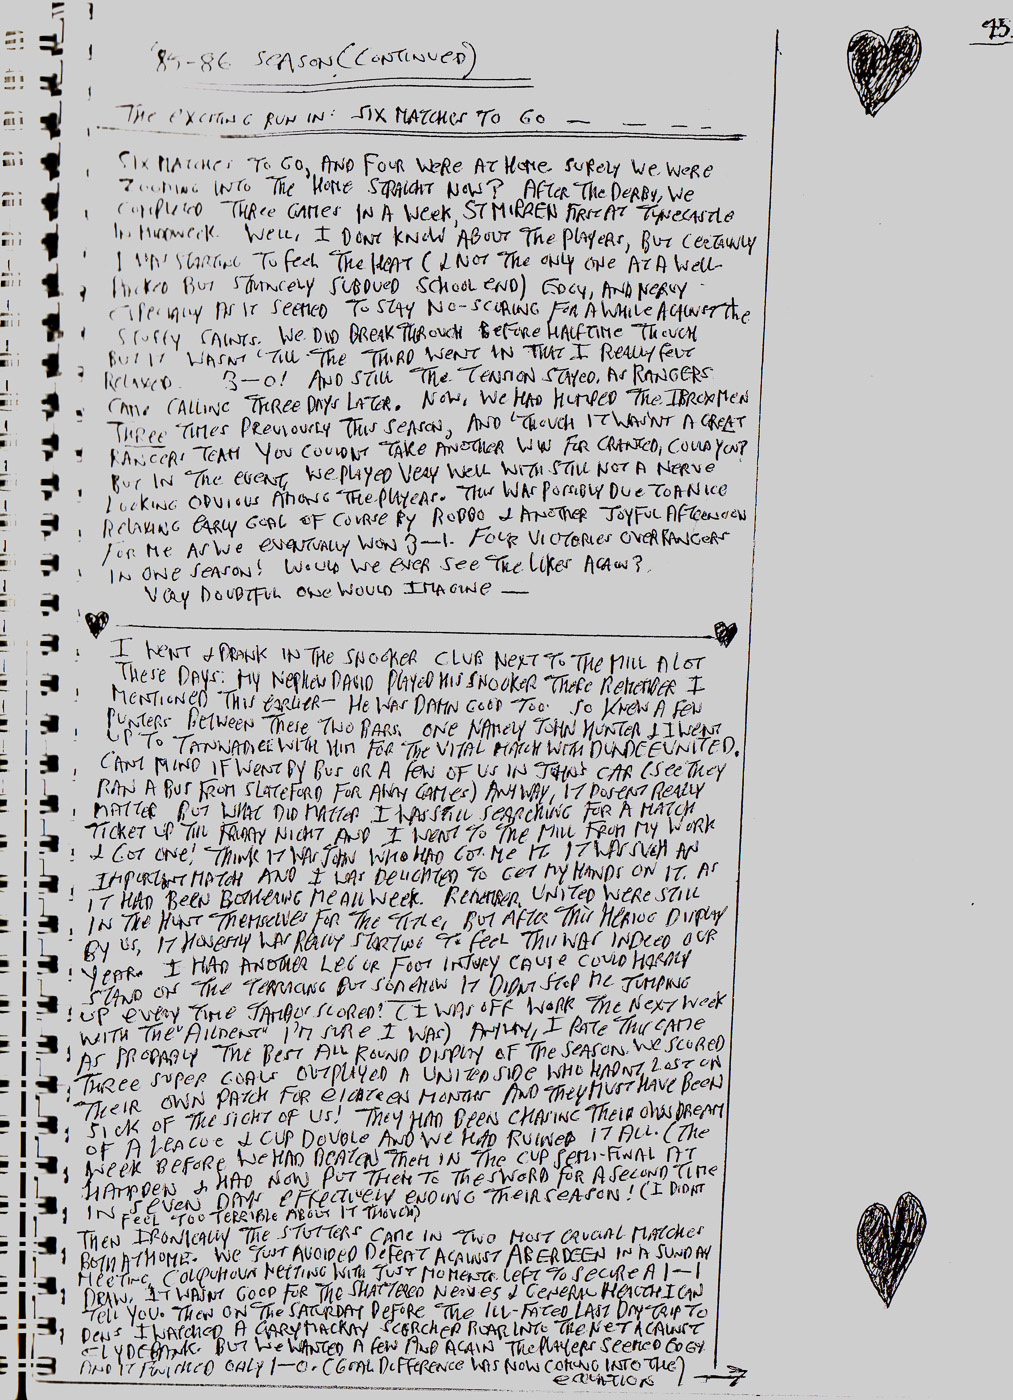 95.
'85-86 SEASON (CONTINUED)
THE EXCITING RUN IN: SIX MATCHES TO GO — — — —
SIX MATCHES TO GO, AND FOUR WERE AT HOME. SURELY WE WERE
ZOOMING INTO THE HOME STRAIGHT NOW? AFTER THE DERBY, WE
COMPLETED THREE GAMES IN A WEEK, ST MIRREN FIRST AT TYNECASTLE
IN MIDWEEK. WELL, I DONT KNOW ABOUT THE PLAYERS, BUT CERTAINLY
I WAS STARTING TO FEEL THE HEAT (& NOT THE ONLY ONE AT A WELL-
PACKED BUT STRANGELY SUBDUED SCHOOL END) EDGY, AND NERVY
ESPECIALLY AS IT SEEMED TO STAY NO-SCORING FOR A WHILE AGAINST THE
STUFFY SAINTS. WE DID BREAK THROUGH BEFORE HALFTIME THOUGH
BUT IT WASNT 'TILL THE THIRD WENT IN THAT I REALLY FELT
RELAXED. 3-0! AND STILL THE TENSION STAYED, AS RANGERS
CAME CALLING THREE DAYS LATER. NOW, WE HAD HUMPED THE IBROXMEN
THREE TIMES PREVIOUSLY THIS SEASON, AND 'THOUGH IT WASN'T A GREAT
RANGERS TEAM YOU COULDNT TAKE ANOTHER WIN FOR GRANTED, COULD YOU?
BUT IN THE EVENT, WE PLAYED VERY WELL WITH STILL NOT A NERVE
LOOKING OBVIOUS AMONG THE PLAYERS. THIS WAS POSSIBLY DUE TO A NICE
RELAXING EARLY GOAL OF COURSE BY ROBBO & ANOTHER JOYFUL AFTERNOON
FOR ME AS WE EVENTUALLY WON 3-1. FOUR VICTORIES OVER RANGERS
IN ONE SEASON! WOULD WE EVER SEE THE LIKES AGAIN?
VERY DOUBTFUL ONE WOULD IMAGINE —
I WENT & DRANK IN THE SNOOKER CLUB NEXT TO THE MILL A LOT
THESE DAYS: MY NEPHEW DAVID PLAYED HIS SNOOKER THERE REMEMBER I
MENTIONED THIS EARLIER - HE WAS DAMN GOOD TOO. SO KNEW A FEW
PUNTERS BETWEEN THESE TWO BARS. ONE NAMELY JOHN HUNTER & I WENT
UP TO TANNADICE WITH HIM FOR THE VITAL MATCH WITH DUNDEE UNITED.
CANT MIND IF WENT BY BUS OR A FEW OF US IN JOHN'S CAR (SEE THEY
RAN A BUS FROM SLATEFORD FOR AWAY GAMES) ANYWAY, IT DOSENT REALLY
MATTER BUT WHAT DID MATTER I WAS STILL SEARCHING FOR A MATCH
TICKET UP TILL FRIDAY NIGHT AND I WENT TO THE MILL FROM MY WORK
& GOT ONE! THINK IT WAS JOHN WHO HAD GOT ME IT. IT WAS SUCH AN
IMPORTANT MATCH AND I WAS DELIGHTED TO GET MY HANDS ON IT. AS
IT HAD BEEN BOTHERING ME ALL WEEK. REMEMBER, UNITED WERE STILL
IN THE HUNT THEMSELVES FOR THE TITLE, BUT AFTER THIS HEROIC DISPLAY
BY US, IT HONESTLY WAS REALLY STARTING TO FEEL THIS WAS INDEED OUR
YEAR. I HAD ANOTHER LEG OR FOOT INJURY CAUSE COULD HARDLY
STAND ON THE TERRACING BUT SOMEHOW IT DIDNT STOP ME JUMPING
UP EVERY TIME JAMBOS SCORED! (I WAS OFF WORK THE NEXT WEEK
WITH THE "AILMENT" I'M SURE I WAS) ANYWAY, I RATE THIS GAME
AS PROBABLY THE BEST ALL ROUND DISPLAY OF THE SEASON. WE SCORED
THREE SUPER GOALS OUTPLAYED A UNITED SIDE WHO HADN'T LOST ON
THEIR OWN PATCH FOR EIGHTEEN MONTHS AND THEY MUST HAVE BEEN
SICK OF THE SIGHT OF US! THEY HAD BEEN CHASING THEIR OWN DREAM
OF A LEAGUE & CUP DOUBLE AND WE HAD RUINED IT ALL. (THE
WEEK BEFORE WE HAD BEATEN THEM IN THE CUP SEMI-FINAL AT
HAMPDEN & HAD NOW PUT THEM TO THE SWORD FOR A SECOND TIME
IN SEVEN DAYS EFFECTIVELY ENDING THEIR SEASON! (I DIDNT
FEEL TOO TERRIBLE ABOUT IT THOUGH)
THEN IRONICALLY THE STUTTERS CAME IN TWO MOST CRUCIAL MATCHES
BOTH AT HOME. WE JUST AVOIDED DEFEAT AGAINST ABERDEEN IN A SUNDAY
MEETING, COLQUHOUN NETTING WITH JUST MOMENTS LEFT TO SECURE A 1-1
DRAW. IT WASNT GOOD FOR THE SHATTERED NERVES & GENERAL HEALTH I CAN
TELL YOU. THEN ON THE SATURDAY BEFORE THE ILL-FATED LAST DAY TRIP TO
DENS I WATCHED A GARY MACKAY SCORCHER ROAR INTO THE NET AGAINST
CLYDEBANK. BUT WE WANTED A FEW AND AGAIN THE PLAYERS SEEMED EDGY
AND IT FINISHED ONLY 1-0. (GOAL DIFFERENCE WAS NOW COMING INTO THE)
EQUATION